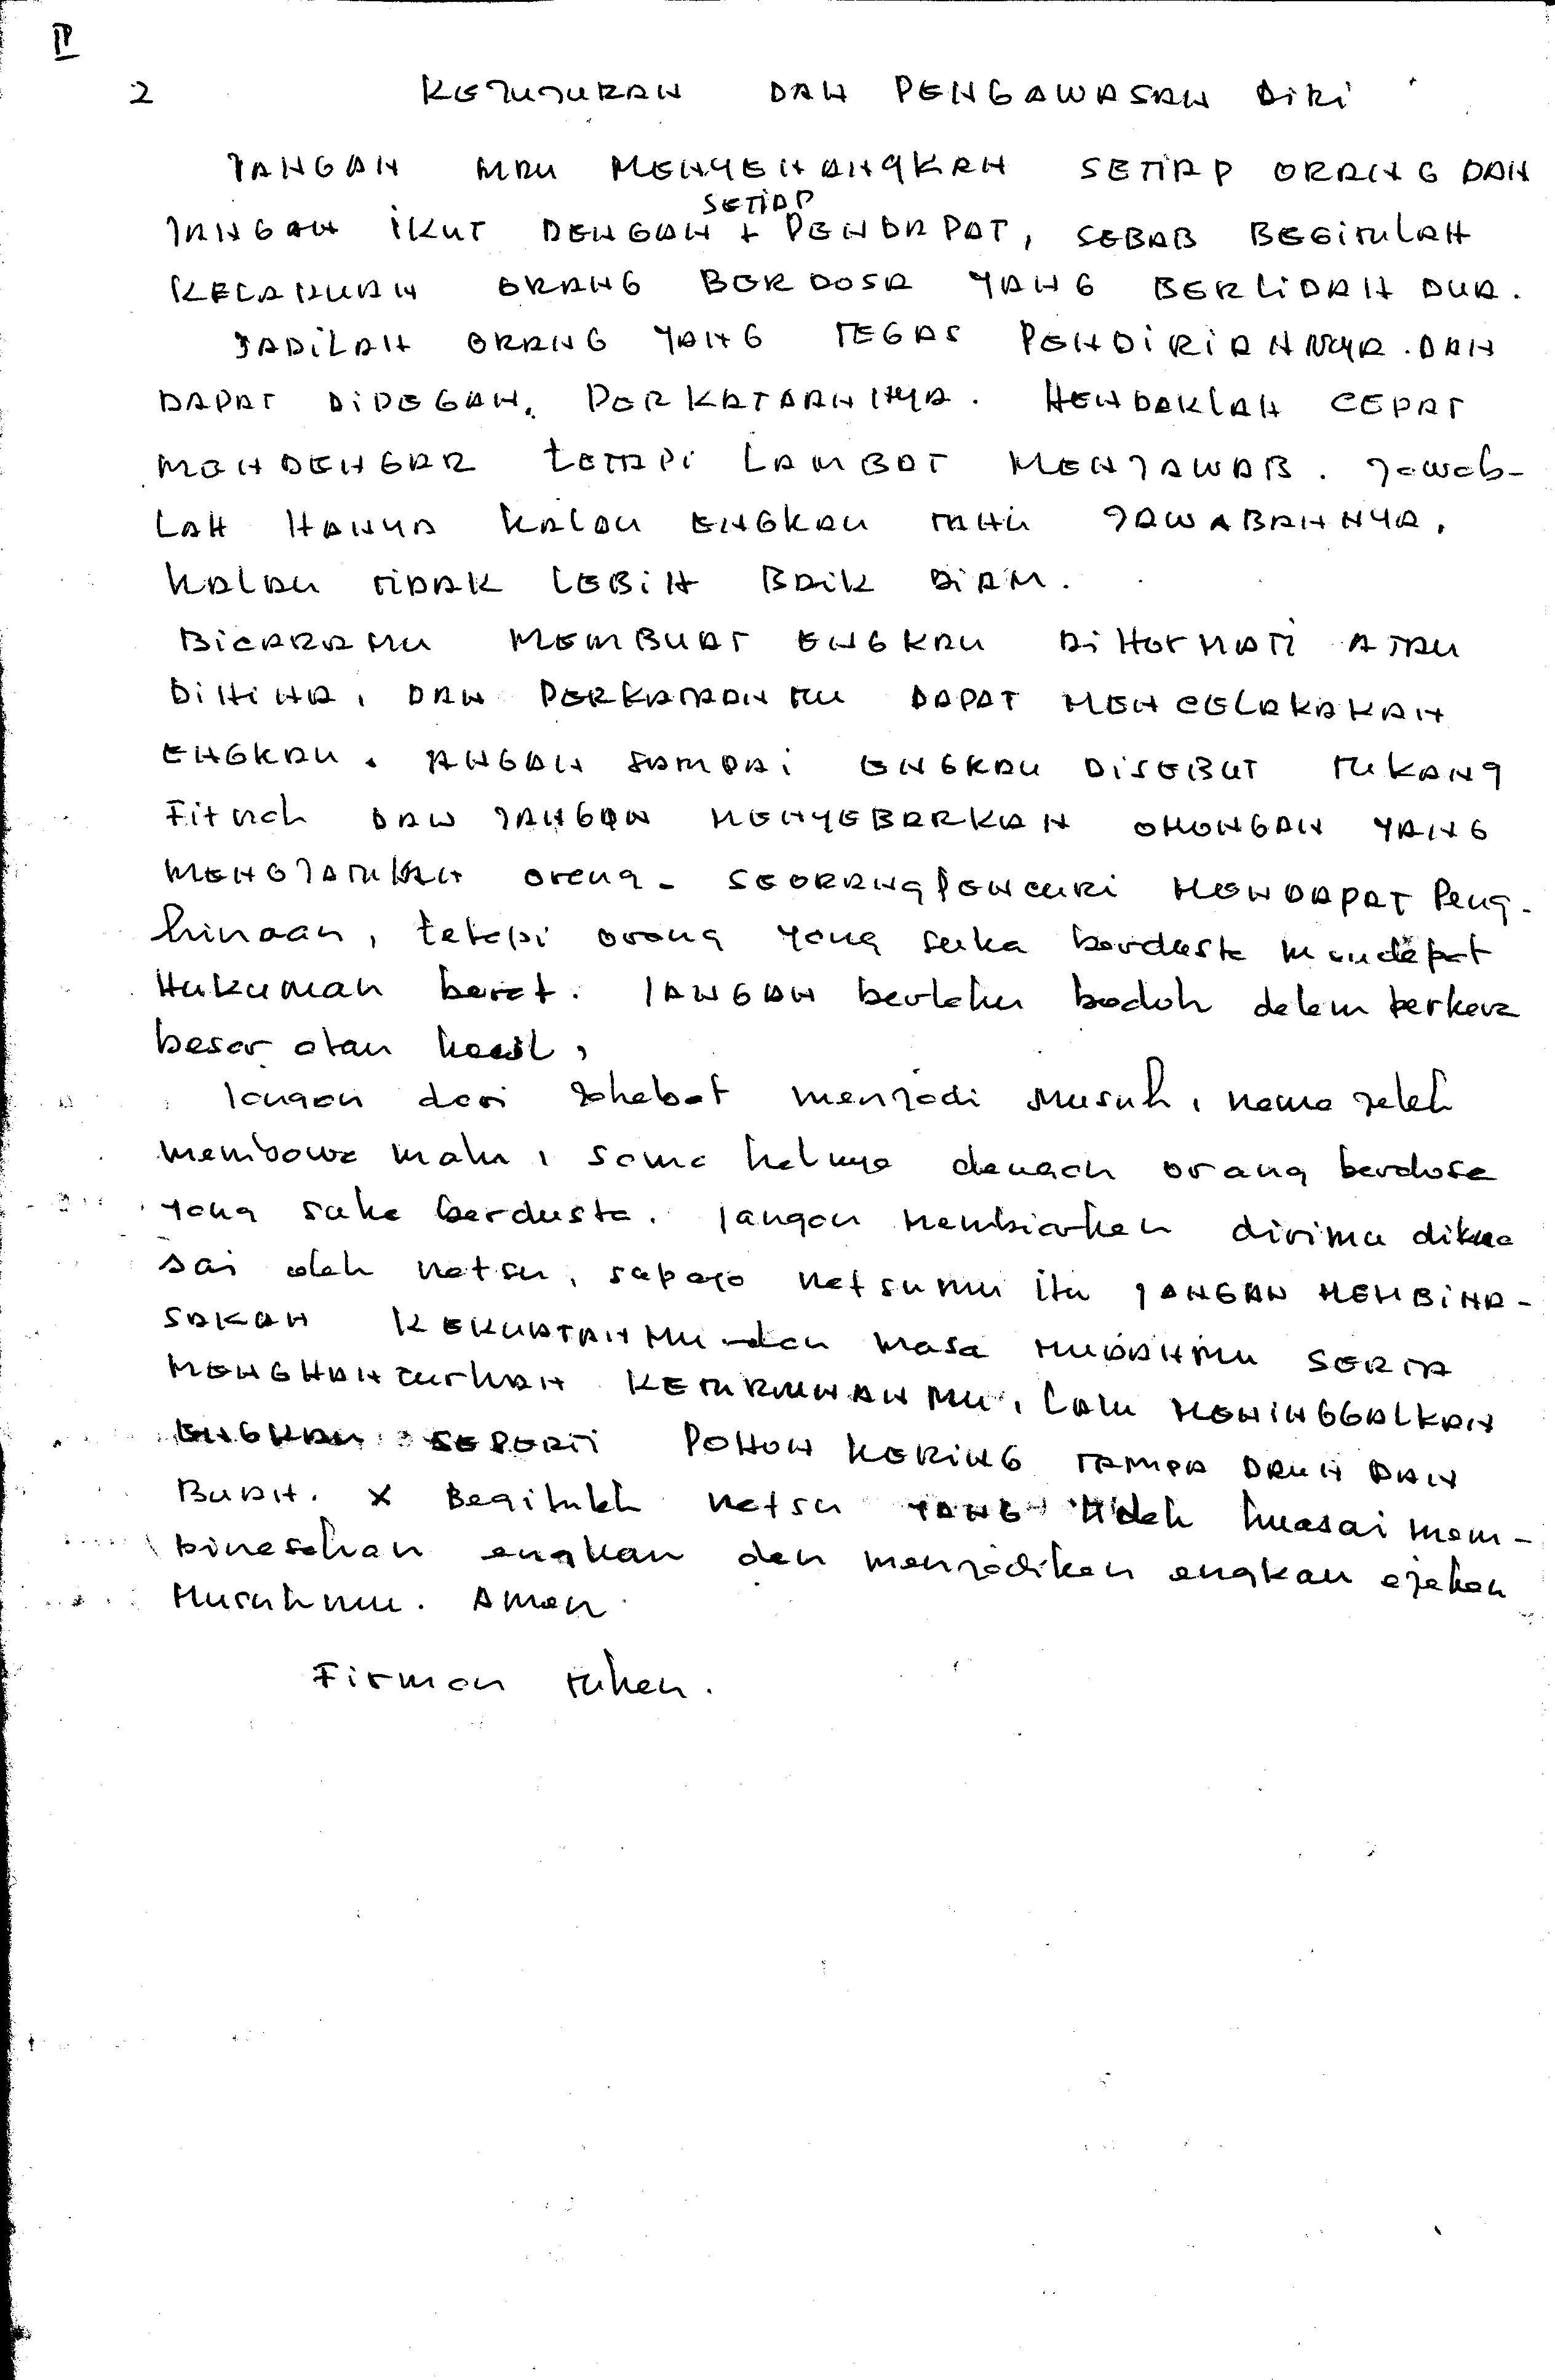 IP
2 KEJUJURAN DAN PENGAWASAN DIRI
JANGAN MAU MENYENANGKAN SETIAP ORANG DAN
SETIAP
JANGAN IKUT DENGAN + PENDAPAT, SEBAB BEGITULAH
KELAKUAN ORANG BERDOSA YANG BERLIDAH DUA.
JADILAH ORANG YANG TEGAS PENDIRIANNYA. DAN
DAPAT DIPEGAN, PERKATAANNYA. HENDAKLAH CEPAT
MENDENGAR TETAPI LAMBAT MENJAWAB. Jawab-
LAH HANYA KALAU ENGKAU TAHU JAWABANNYA,
KALAU TIDAK LEBIH BAIK DIAM.
BICARAMU MEMBUAT ENGKAU DIHORMATI ATAU
DIHINA, DAN PERKATAANMU DAPAT MENCELAKAKAN
ENGKAU. JANGAN SAMPAI ENGKAU DISEBUT TUKANG
Fitnah DAN JANGAN MENYEBARKAN OMONGAN YANG
MENJATUHKAN orang. SEORANG PENCURI MENDAPAT Peng-
hinaan, tetapi orang yang suka berdusta mendapat
Hukuman berat. JANGAN berlaku bodoh dalam perkara
besar atau kecil,
Jangan dari sahabat menjadi musuh, nama jelek
membawa malu, sama halnya dengan orang berdosa
yang suka berdusta. Jangan membiarkan dirimu dikua
sai oleh nafsu, supaya nafsumu itu JANGAN MEMBINA-
SAKAN KEKUATANMU dan masa MUDAHMU SERTA
MENGHANCURKAN KETURUNANMU, LALU MENINGGALKAN
ENGKAU SEPERTI POHON KERING TAMPA DAUN DAN
BUAH. x Begitulah nafsu YANG tidak kuasai mem-
binasakan engkau dan menjadikan engkau ejekan
Musuhmu. Amen.
Firman tuhan.